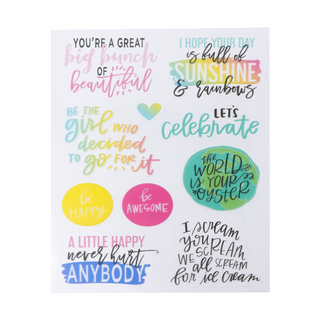 YOU'RE A GREAT
big bunch
OF
beautiful
I HOPE YOUR DAY
is full of
SUNSHINE
& rainbows
BE THE
girl WHO
decided
TO go FOR it
LET'S
celebrate
be
HAPPY
be
AWESOME
THE
WORLD
IS YOUR
OYSTER
A LITTLE HAPPY
never hurt
ANYBODY
I SCREAM
YOU SCREAM
WE all SCREAM
for ice cream